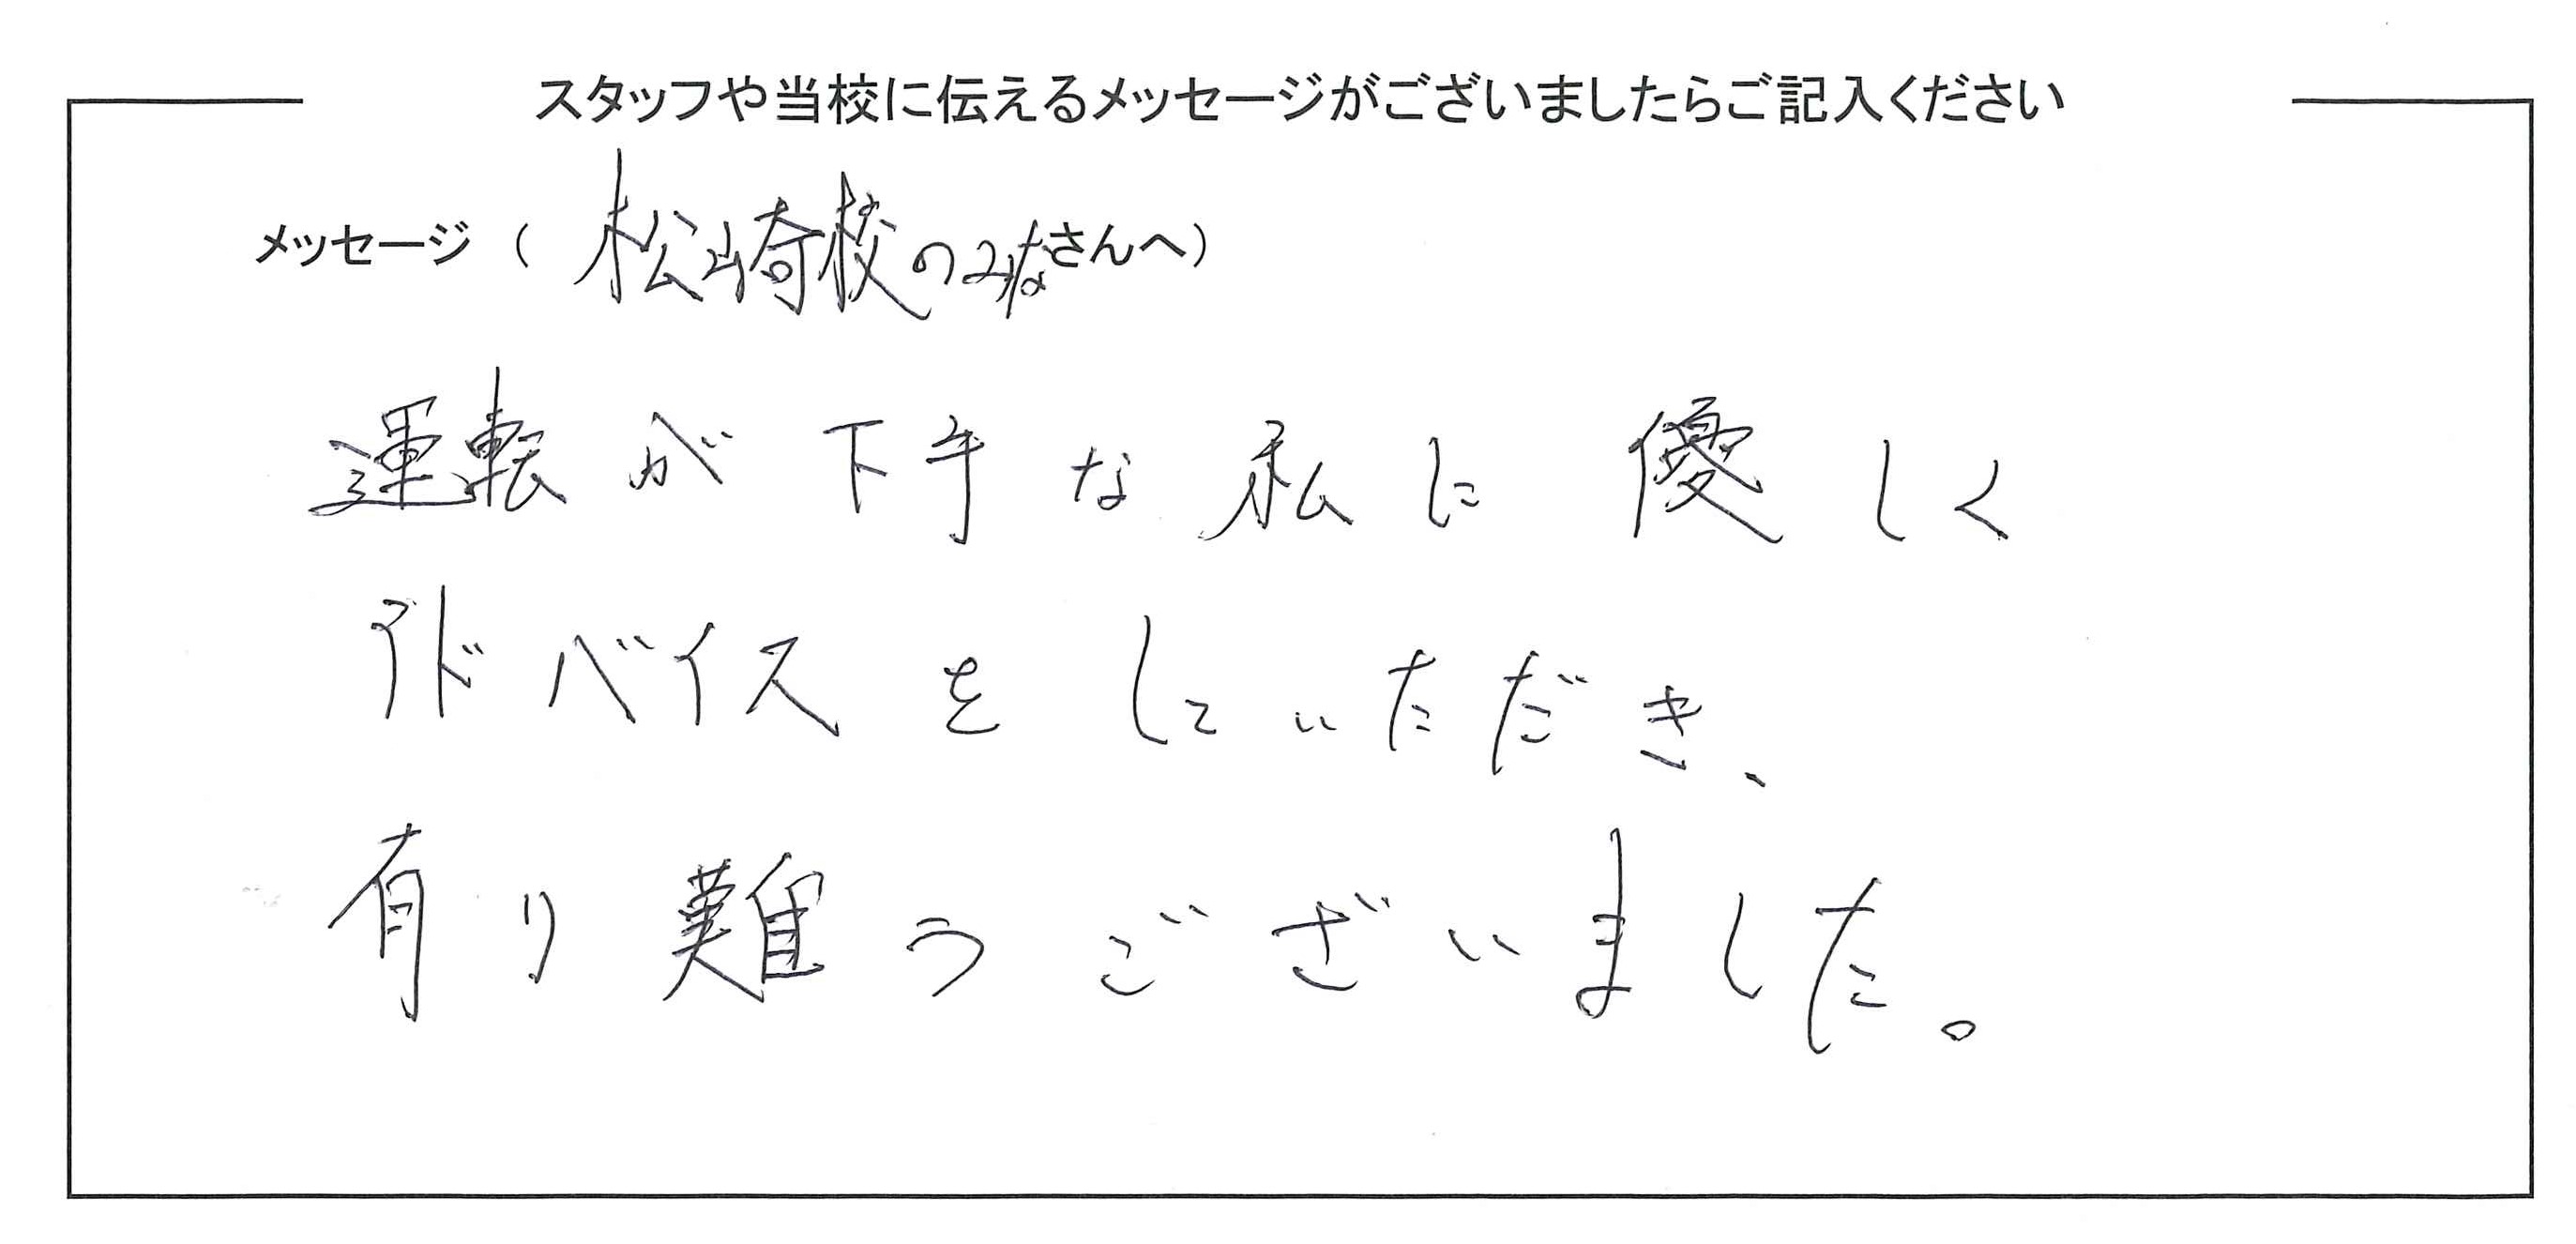 スタッフや当校に伝えるメッセージがございましたらご記入ください
メッセージ ( 松崎校のみなさんへ)
運転が下手な私に優しく
アドバイスをしていただき、
有り難うございました。